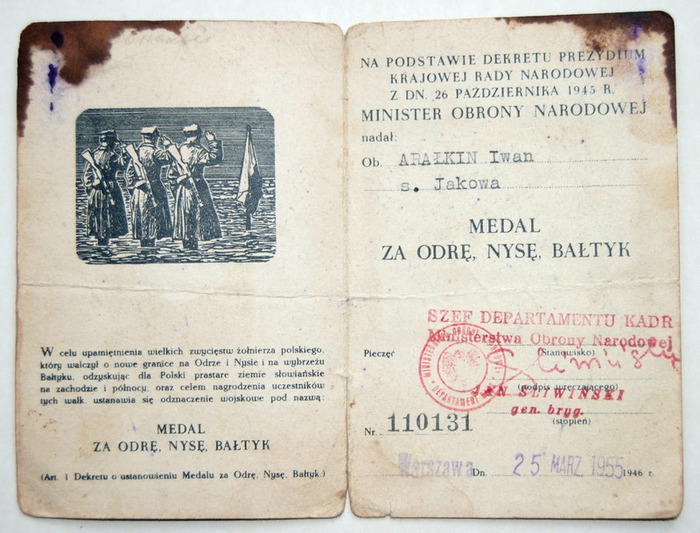 W celu upamiętnienia wielkich zwycięstw żołnierza polskiego,
który walczył o nowe granice na Odrze i Nysie i na wybrzeżu
Bałtyku, odzyskując dla Polski prastare ziemie słowiańskie
na zachodzie i północy, oraz celem nagrodzenia uczestników
tych walk, ustanawia się odznaczenie wojskowe pod nazwą:
MEDAL
ZA ODRĘ, NYSĘ, BAŁTYK
(Art. 1 Dekretu o ustanowieniu Medalu za Odrę, Nysę, Bałtyk.)
NA PODSTAWIE DEKRETU PREZYDIUM
KRAJOWEJ RADY NARODOWEJ
Z DN. 26 PAŹDZIERNIKA 1945 R.
MINISTER OBRONY NARODOWEJ
nadał:
Ob. ARAŁKIN Iwan
s. Jakowa
MEDAL
ZA ODRĘ, NYSĘ, BAŁTYK
SZEF DEPARTAMENTU KADR
Ministerstwa Obrony Narodowej
Pieczęć (Stanowisko)
(podpis wręczającego)
JAN ŚLIWIŃSKI
gen. bryg.
(stopień)
Nr. 110131
Warszawa Dn. 25 MARZ 1955 1946 r.